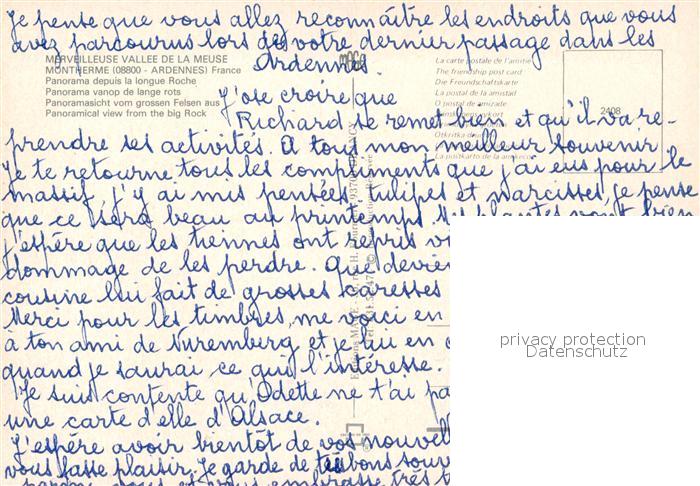 Je pense que vous allez reconnaître les endroits que vous
avez parcourus lors de votre dernier passage dans les
Ardennes.
MERVEILLEUSE VALLEE DE LA MEUSE
MONTHERME (08800 - ARDENNES) France
Panorama depuis la longue Roche
Panorama vanop de lange rots
Panoramasicht vom grossen Felsen aus
Panoramical view from the big Rock
La carte postale de l'amitié
The friendship post card
Die Freundschaftskarte
La postal de la amistad
O postal de amizade
2408
J'ose croire que
Richard se remet bien et qu'il va re-
prendre ses activités. A tous mon meilleur souvenir
Je te retourne tous les compliments que j'ai eus pour le
massif, j'y ai mis pensées, tulipes et narcisses, je pense
que ce sera beau au printemps. Les plantes vont bien
j'espère que les tiennes ont repris
dommage de les perdre. Que
cousine lui fait de grosses caresses
Merci pour les timbres, me voici en
à ton ami de Nuremberg et je lui en
quand je saurai ce qui l'intéresse.
Je suis contente qu'Odette ne t'ai pa
une carte d'elle d'Alsace.
J'espère avoir bientôt de vos nouvell
vous fasse plaisir. Je garde de très bons souv
privacy protection
Datenschutz